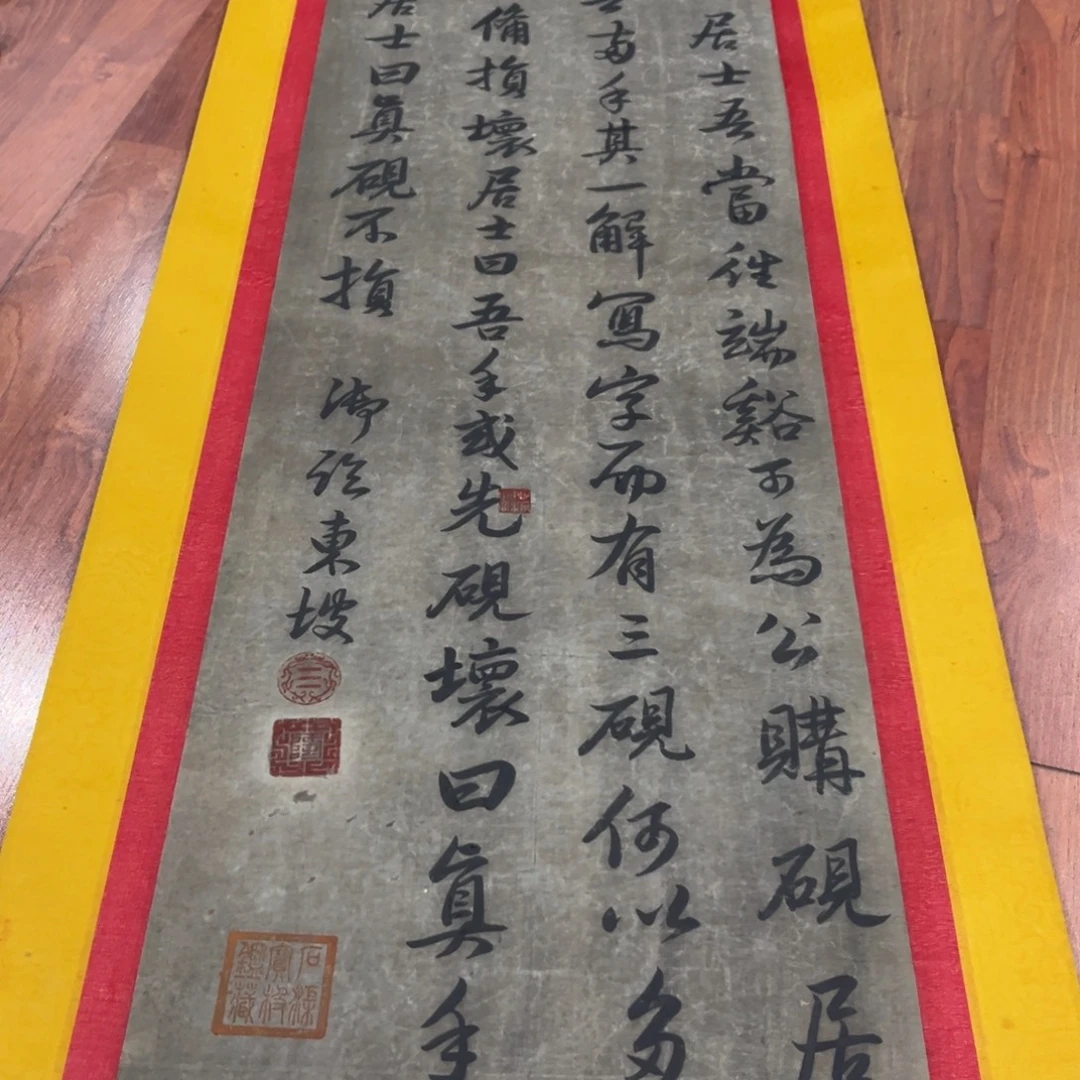 居士吾當往端谿可為公購硯居
吾兩手其一解寫字而有三硯何以多
備損壞居士曰吾手或先硯壞曰真手
居士曰真硯不損
御臨東坡